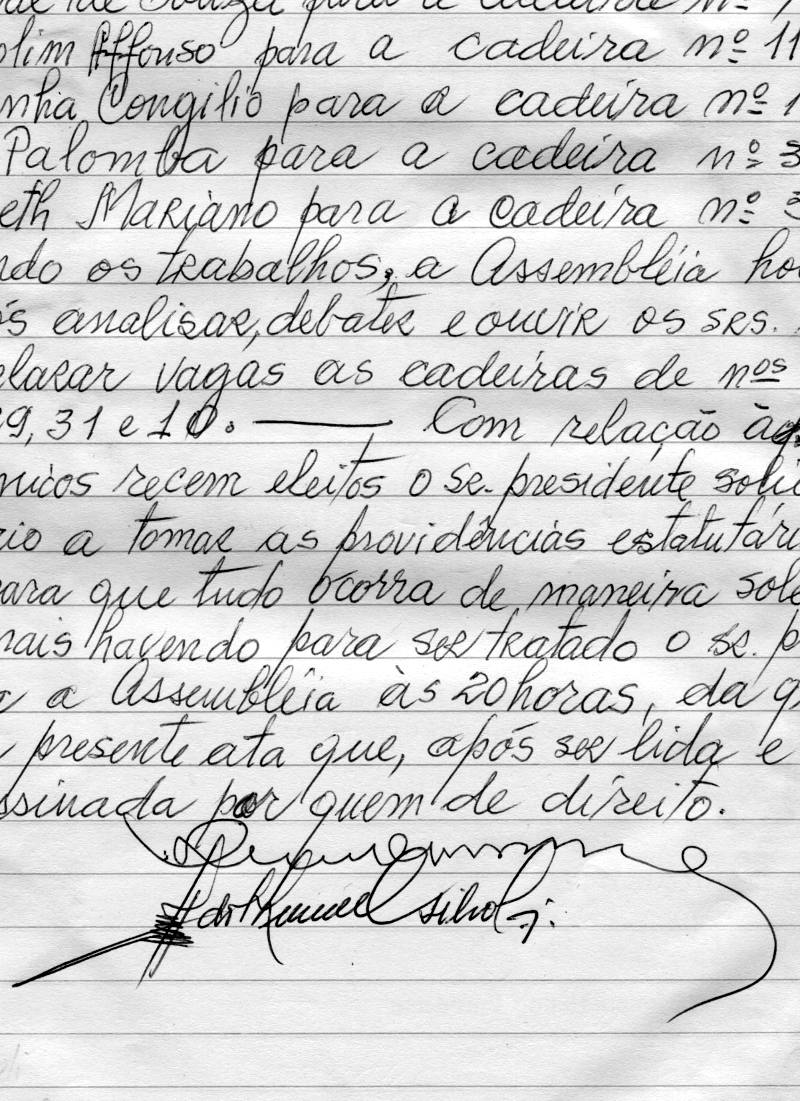 de Souza para a cadeira nº
olim Affonso para a cadeira nº 11
nha Congilio para a cadeira nº 1
Palomba para a cadeira nº 3
eth Mariano para a cadeira nº 3
ndo os trabalhos, a Assembléia ho
ós analisar, debater e ouvir os srs.
elarar vagas as cadeiras de nºs
29, 31 e 10. ——— Com relação àq
micos recem eleitos o sr. presidente soli
rio a tomar as providências estatutári
para que tudo ocorra de maneira sole
mais havendo para ser tratado o sr. p
a Assembléia às 20 horas, da q
a presente ata que, após ser lida e
ssinada por quem de direito.